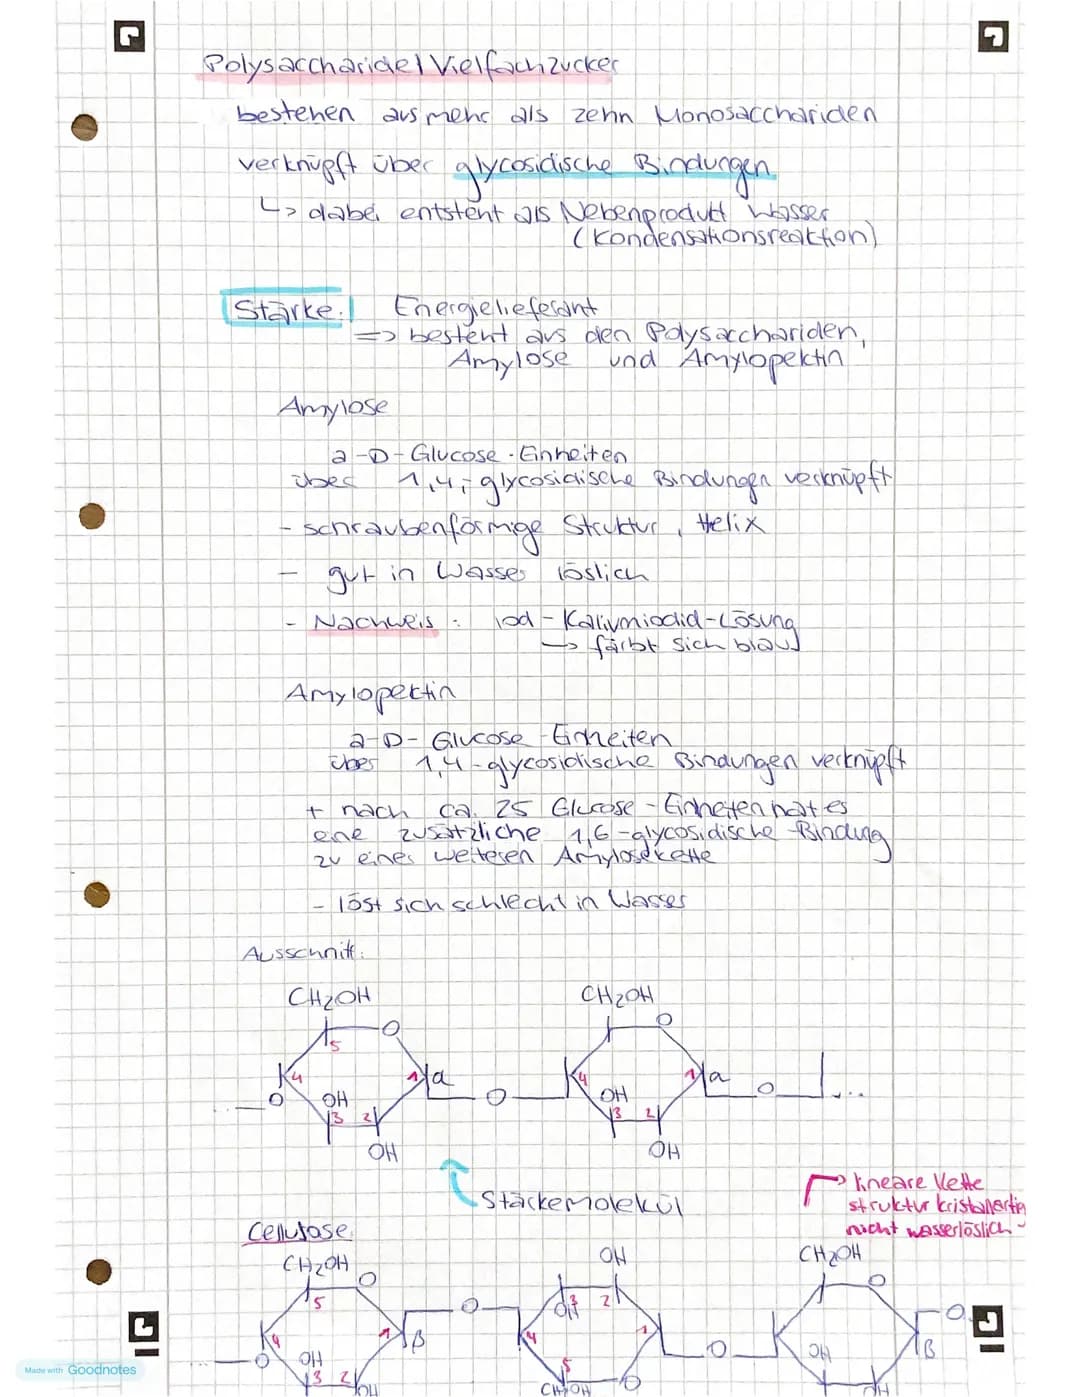 Polysaccharide / Vielfachzucker
bestehen aus mehr als zehn Monosacchariden
verknüpft über glycosidische Bindungen
↳ dabei entsteht als Nebenprodukt Wasser
(Kondensationsreaktion)
Stärke: Energielieferant
=> besteht aus den Polysacchariden,
Amylose und Amylopektin
Amylose
a-D-Glucose-Einheiten
über 1,4,-glycosidische Bindungen verknüpft
- schraubenförmige Struktur, Helix
- gut in Wasser löslich
- Nachweis: Iod-Kaliumiodid-Lösung
→ färbt sich blau
Amylopektin
a-D-Glucose-Einheiten
über 1,4-glycosidische Bindungen verknüpft
+ nach ca. 25 Glucose-Einheiten hat es
eine zusätzliche 1,6-glycosidische Bindung
zu einer weiteren Amylosekette
- löst sich schlecht in Wasser
Ausschnitt:
CH2OH CH2OH
O O
5
4 1 a 4 1 a
O OH O OH O ...
3 2 3 2
OH OH
Stärkemolekül
→ lineare Kette
struktur kristallartig
nicht wasserlöslich
Cellulose
CH2OH O OH CH2OH O
5 O OH 3 2 O
4 1 β 4 1 O β
O OH 5 OH
3 2 OH CH2OH O OH
Made with Goodnotes